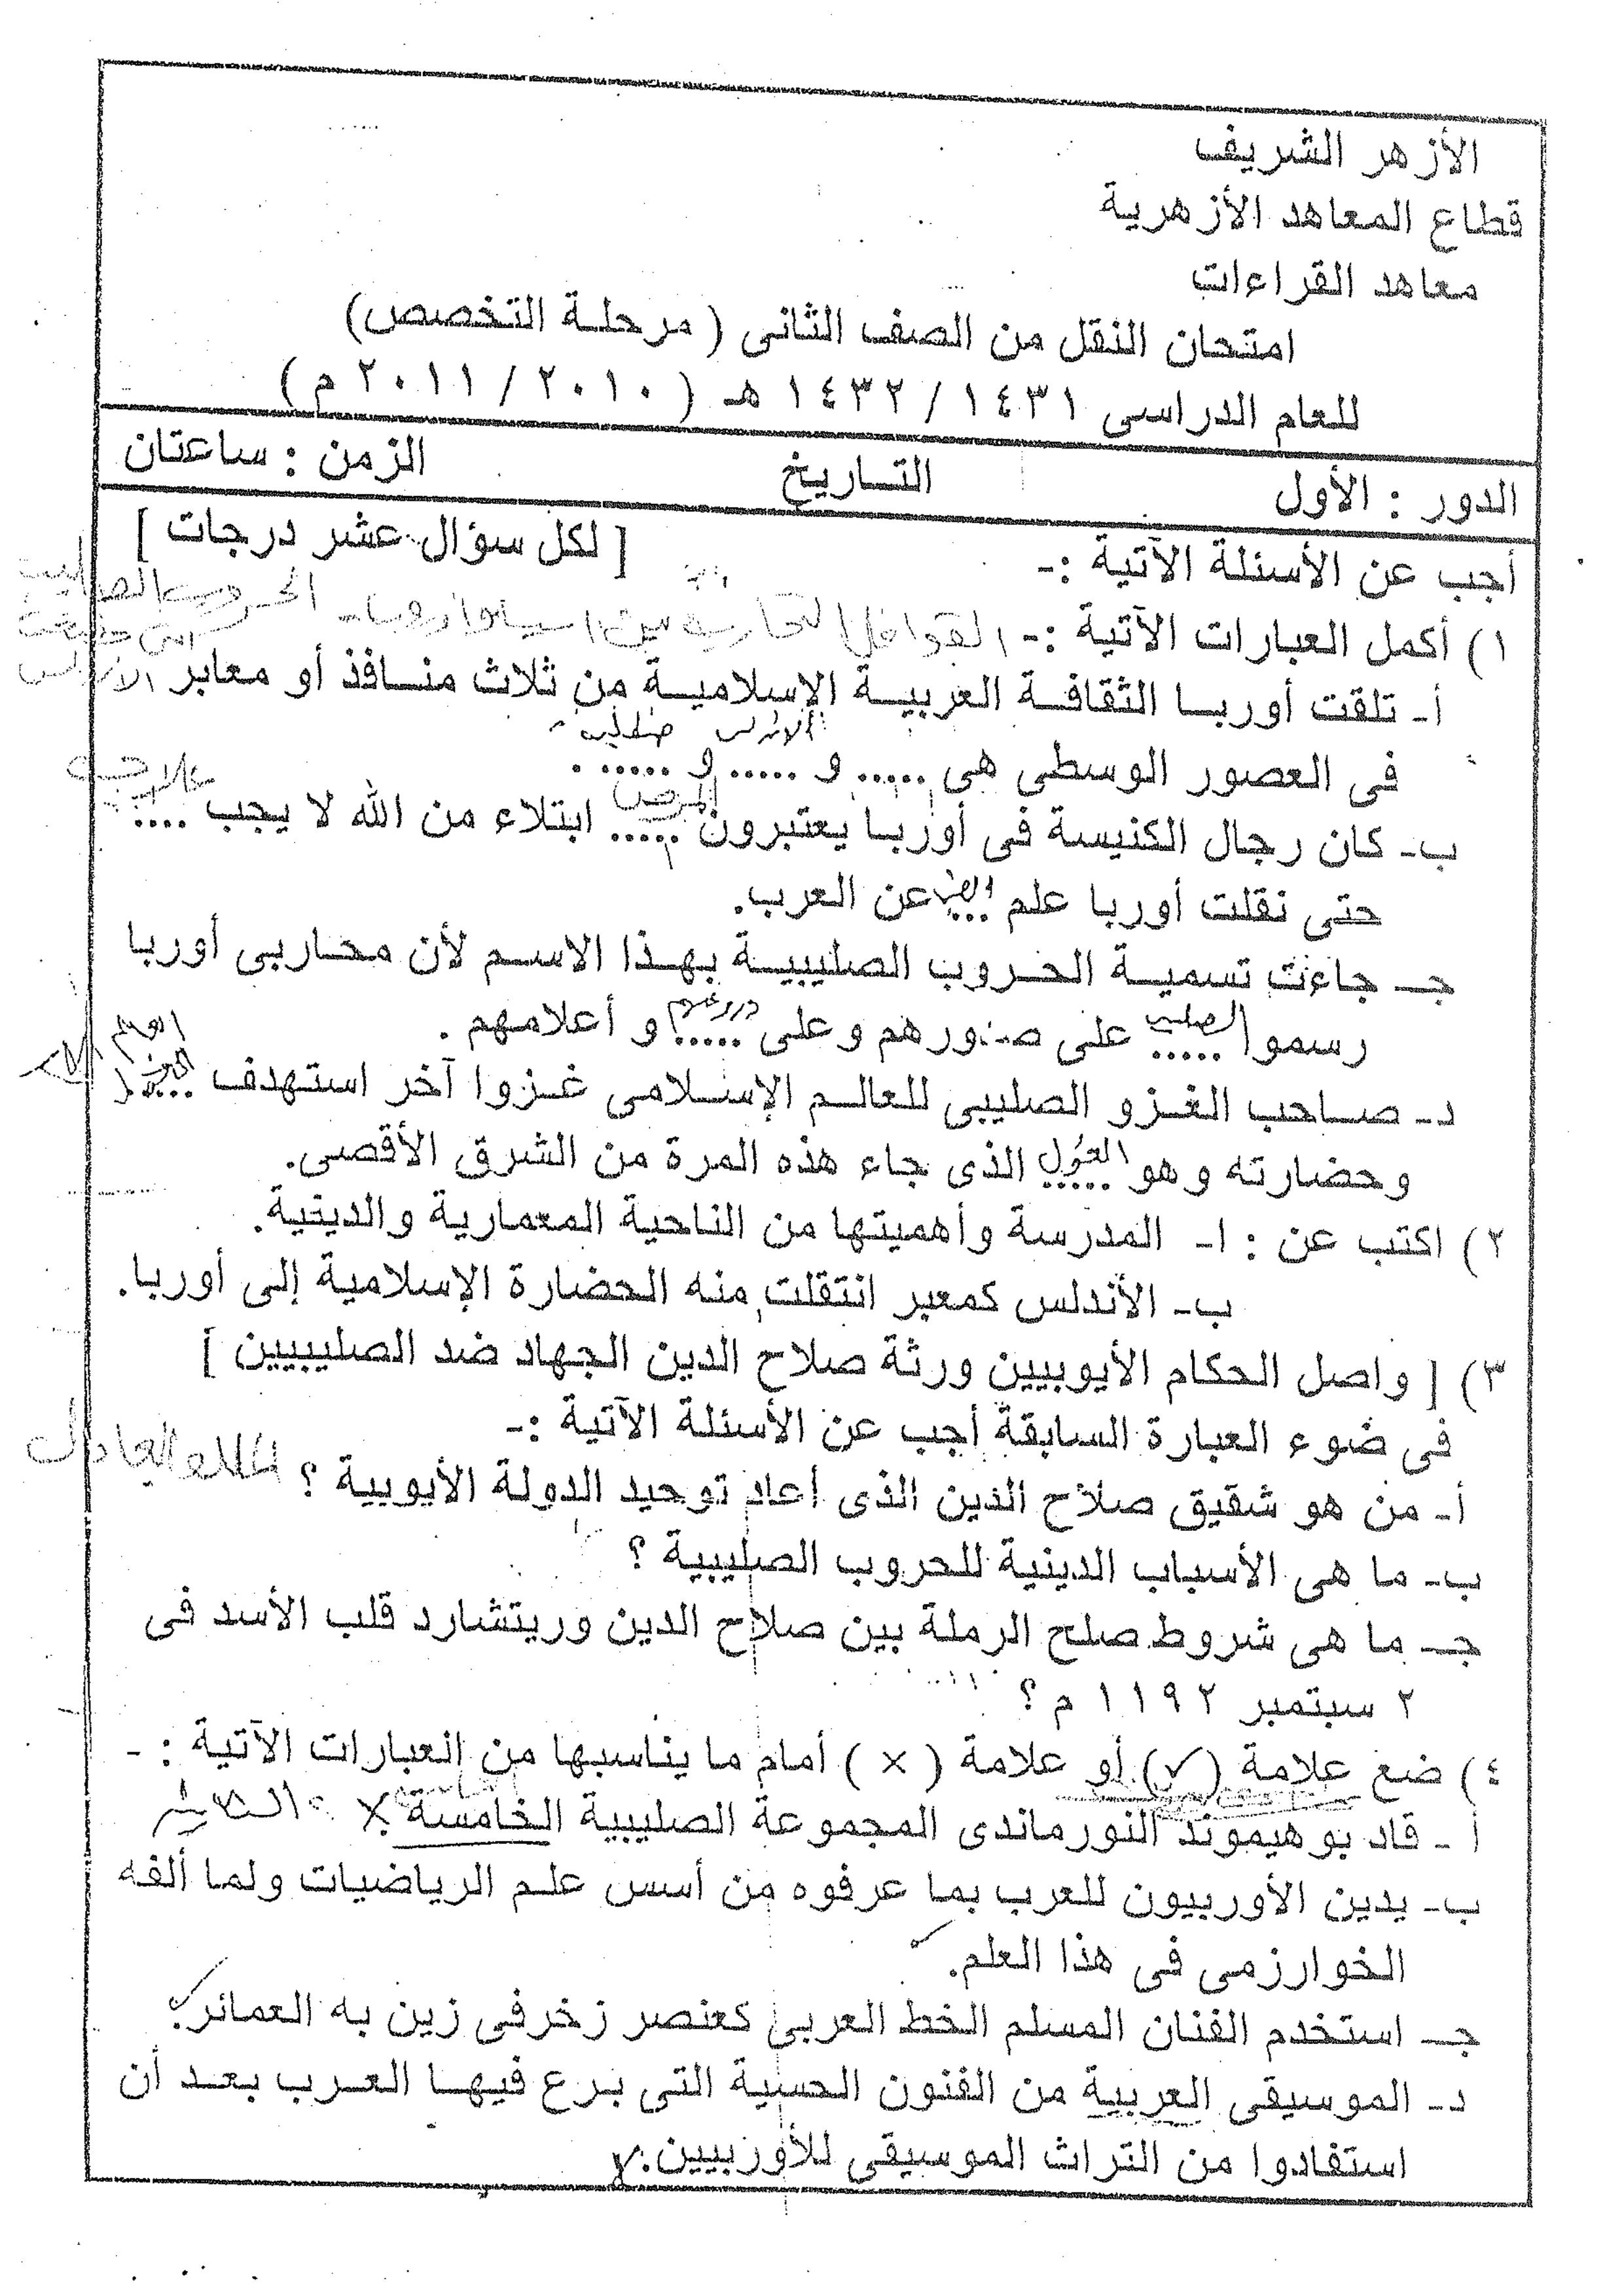 الأزهر الشريف
قطاع المعاهد الأزهرية
معاهد القراءات
امتحان النقل من الصف الثانى ( مرحلة التخصص )
للعام الدراسى ١٤٣١ / ١٤٣٢ هـ ( ٢٠١٠ / ٢٠١١ م )
الدور : الأول التاريخ الزمن : ساعتان
أجب عن الأسئلة الآتية :- [ لكل سؤال عشر درجات ]
١ ) أكمل العبارات الآتية :- القوافل التجارية بين اسيا واروبا - الحروب الصليبية
أ- تلقت أوربا الثقافة العربية الإسلامية من ثلاث منافذ أو معابر الأندلس
الأندلس صقلية
فى العصور الوسطى هى ..... و ..... و ...... .
ب- كان رجال الكنيسة فى أوربا يعتبرون ..... المرض ابتلاء من الله لا يجب .... علاجه
حتى نقلت أوربا علم ... الطب عن العرب.
جـ- جاءت تسمية الحروب الصليبية بهذا الاسم لأن محاربى أوربا
رسموا ..... الصليب على صدورهم وعلى ..... دروعهم و أعلامهم .
د- صاحب الغزو الصليبى للعالم الإسلامى غزوا آخر استهدف .....
وحضارته وهو ..... الذى جاء هذه المرة من الشرق الأقصى.
٢ ) اكتب عن : ا- المدرسة وأهميتها من الناحية المعمارية والدينية.
ب- الأندلس كمعبر انتقلت منه الحضارة الإسلامية إلى أوربا.
٣ ) [ واصل الحكام الأيوبيين ورثة صلاح الدين الجهاد ضد الصليبيين ]
فى ضوء العبارة السابقة أجب عن الأسئلة الآتية :-
أ- من هو شقيق صلاح الدين الذى أعاد توحيد الدولة الأيوبية ؟ الملك العادل
ب- ما هى الأسباب الدينية للحروب الصليبية ؟
جـ- ما هى شروط صلح الرملة بين صلاح الدين وريتشارد قلب الأسد فى
٢ سبتمبر ١١٩٢ م ؟
٤ ) ضع علامة ( √ ) أو علامة ( × ) أمام ما يناسبها من العبارات الآتية : -
أ - قاد بوهيموند النورماندى المجموعة الصليبية الخامسة. ×
ب- يدين الأوربيون للعرب بما عرفوه من أسس علم الرياضيات ولما ألفه
الخوارزمى فى هذا العلم. ✓
جـ- استخدم الفنان المسلم الخط العربى كعنصر زخرفى زين به العمائر. ✓
د- الموسيقى العربية من الفنون الحسية التى برع فيها العرب بعد أن
استفادوا من التراث الموسيقى للأوربيين.